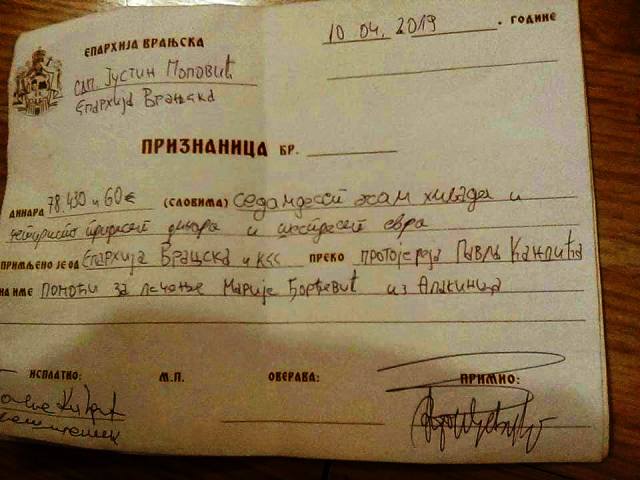 ЕПАРХИЈА ВРАЊСКА
10 04. 2019 . ГОДИНЕ
Јустин Поповић
Епархија Врањска
ПРИЗНАНИЦА БР.
ДИНАРА 78.430 и 60€ (СЛОВИМА) седамдесет осам хиљада и
четиристо тридесет динара и шездесет евра
ПРИМЉЕНО ЈЕ ОД Епархија Врањска и КСС ПРЕКО протојереја Павла
НА ИМЕ помоћи за лечење Марије Ђорђевић из Алакинца
ИСПЛАТИО: М.П. ОВЕРАВА: ПРИМИО: